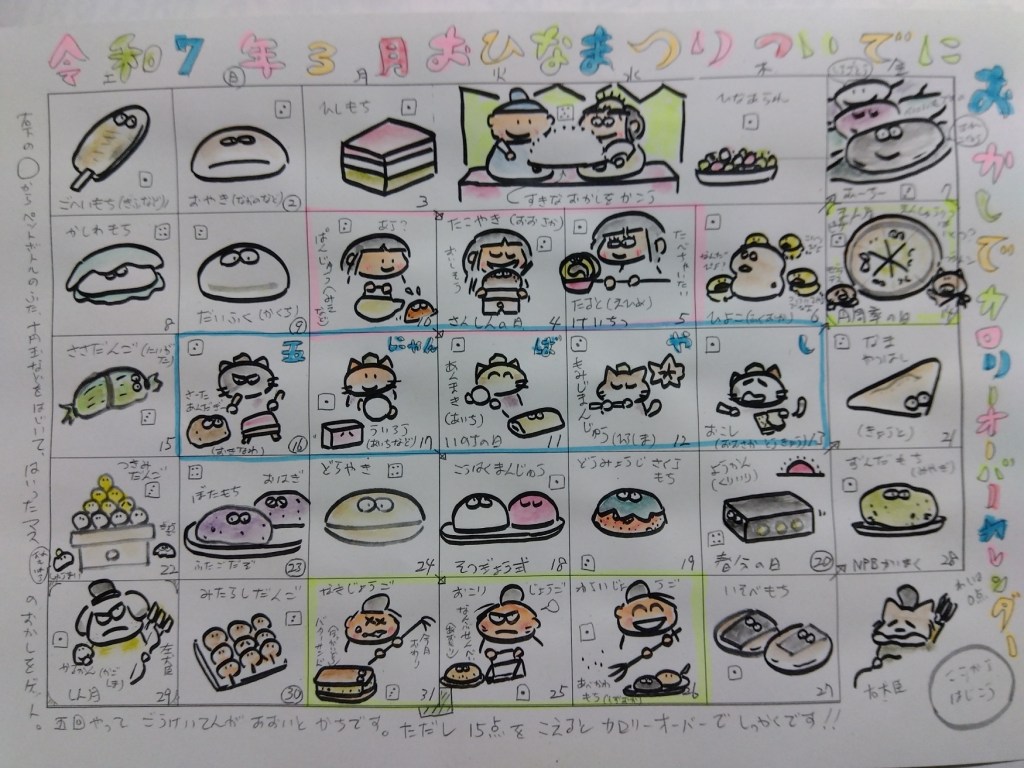 令和7年3月おひなまつりついでに
おかしでカロリーオーバーカレンダー
土 日 月 火 水 木 金
ごへいもち(ぎふなど)
おやき(ながのなど) 2
ひしもち 3
すきなおかしをかこう
ひなあられ
7
かしわもち 8
だいふく(かくち) 9
あら?
10
たこやき(おおさか)
さんしんの日 4
たべちゃいたい
たると(えひめ)
けいちつ 5
ひよこ(ふくおか) 6
円周率の日 14
ささだんご
15
五
さーたあんだぎー
(おきなわ) 16
にゃん
ういろう(あいちなど) 17
ば
あんまき(あいち)
いのちの日 11
や
もみじまんじゅう(ひろしま) 12
し
おこし(おおさかとうきょう) 13
なまやつはし
(きょうと) 21
つきみだんご
22
おはぎ
ぼたもち
ふたごだぞ 23
どらやき
24
こうはくまんじゅう
そつぎょう式 18
どうみょうじさくらもち
19
ようかん(くりいり)
春分の日 20
ずんだもち(みやぎ)
NPBかいまく 28
左大臣
しん月 29
みたらしだんご
30
なきじょうご
31
おこりじょうご
なんぶせんべい
25
わらいじょうご
26
いそべもち
27
右大臣
ここからはじこう
右の○からペットボトルのふた、十円玉などをはじいて、はいったマスのおかしをゲット。
五回やって ごうけいてんが おおいと かちです。ただし 15点を こえると カロリーオーバーで しっかくです!!